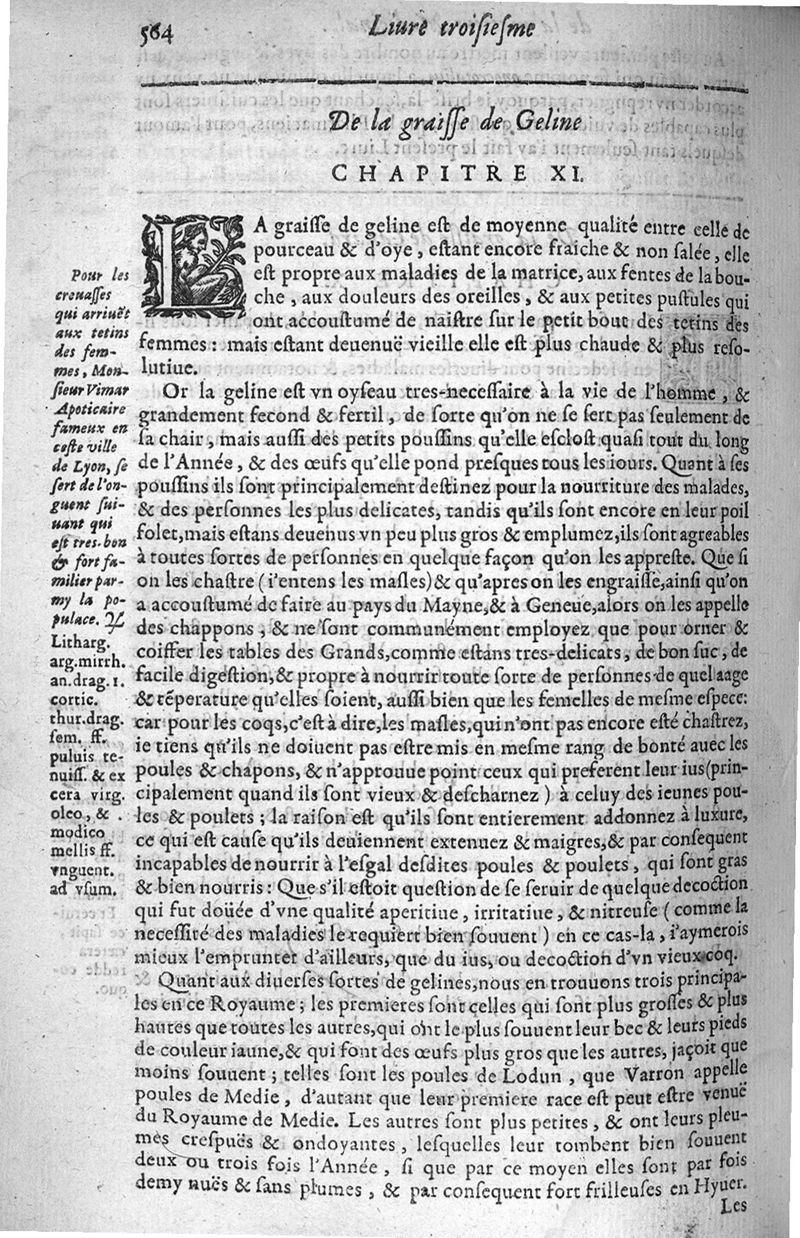 564
Liure troisiesme
De la graisse de Geline
CHAPITRE XI.
LA graisse de geline est de moyenne qualité entre celle de
pourceau & d'oye, estant encore fraiche & non salée, elle
est propre aux maladies de la matrice, aux fentes de la bou-
che, aux douleurs des oreilles, & aux petites pustules qui
ont accoustumé de naistre sur le petit bout des tetins des
femmes: mais estant deuenuë vieille elle est plus chaude & plus reso-
lutiue.
Or la geline est vn oyseau tres-necessaire à la vie de l'homme, &
grandement fecond & fertil, de sorte qu'on ne se sert pas seulement de
sa chair, mais aussi des petits poussins qu'elle esclost quasi tout du long
de l'Année, & des œufs qu'elle pond presques tous les iours. Quant à ses
poussins ils sont principalement destinez pour la nourriture des malades,
& des personnes les plus delicates, tandis qu'ils sont encore en leur poil
folet, mais estans deuenus vn peu plus gros & emplumez, ils sont agreables
à toutes sortes de personnes en quelque façon qu'on les appreste. Que si
on les chastre (i'entens les masles) & qu'apres on les engraisse, ainsi qu'on
a accoustumé de faire au pays du Mayne, & à Geneue, alors on les appelle
des chappons, & ne sont communément employez que pour orner &
coiffer les tables des Grands, comme estans tres-delicats, de bon suc, de
facile digestion, & propre à nourrir toute sorte de personnes de quel aage
& tẽperature qu'elles soient, aussi bien que les femelles de mesme espece:
car pour les coqs, c'est à dire, les masles, qui n'ont pas encore esté chastrez,
ie tiens qu'ils ne doiuent pas estre mis en mesme rang de bonté auec les
poules & chapons, & n'approuue point ceux qui preferent leur ius (prin-
cipalement quand ils sont vieux & descharnez) à celuy des ieunes pou-
les & poulets; la raison est qu'ils sont entierement addonnez à luxure,
ce qui est cause qu'ils deuiennent extenuez & maigres, & par consequent
incapables de nourrir à l'esgal desdites poules & poulets, qui sont gras
& bien nourris: Que s'il estoit question de se seruir de quelque decoction
qui fut doüée d'vne qualité aperitiue, irritatiue, & nitreuse (comme la
necessité des maladies le requiert bien souuent) en ce cas-la, i'aymerois
mieux l'emprunter d'ailleurs, que du ius, ou decoction d'vn vieux coq.
Quant aux diuerses sortes de gelines, nous en trouuons trois principa-
les en ce Royaume; les premieres sont celles qui sont plus grosses & plus
hautes que toutes les autres, qui ont le plus souuent leur bec & leurs pieds
de couleur iaune, & qui font des œufs plus gros que les autres, jaçoit que
moins souuent; telles sont les poules de Lodun, que Varron appelle
poules de Medie, d'autant que leur premiere race est peut estre venuë
du Royaume de Medie. Les autres sont plus petites, & ont leurs plu-
mes crespuës & ondoyantes, lesquelles leur tombent bien souuent
deux ou trois fois l'Année, si que par ce moyen elles sont par fois
demy nuës & sans plumes, & par consequent fort frilleuses en Hyuer.
Les
Pour les
creuasses
qui arriuẽt
aux tetins
des fem-
mes, Mon-
sieur Vimar
Apoticaire
fameux en
ceste ville
de Lyon, se
sert de l'on-
guent sui-
uant qui
est tres-bon
& fort fa-
milier par-
my la po-
pulace. ℞
Litharg.
arg. mirrh.
an. drag. 1.
cortic.
thur. drag.
sem. ff.
puluis te-
nuiss. & ex
cera virg.
oleo, &
modico
mellis ff.
vnguent.
ad vsum.